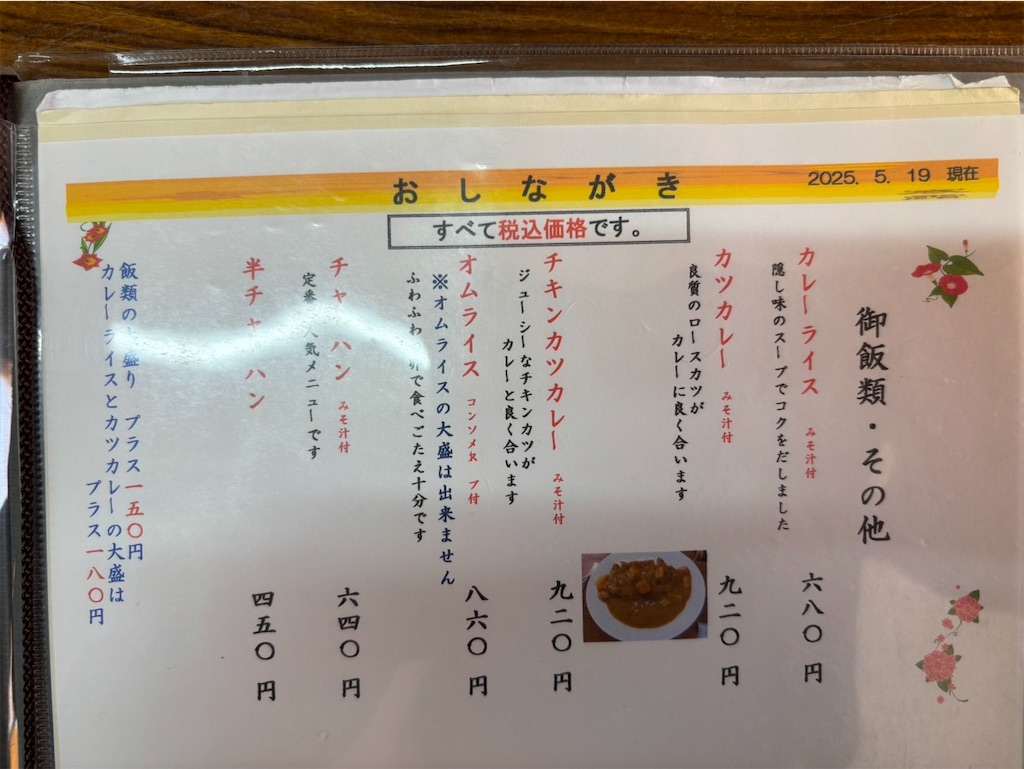 おしながき
2025. 5. 19 現在
すべて税込価格です。
御飯類・その他
カレーライス みそ汁付 六八〇円
隠し味のスープでコクをだしました
カツカレー みそ汁付 九二〇円
良質のロースカツが
カレーに良く合います
チキンカツカレー みそ汁付 九二〇円
ジューシーなチキンカツが
カレーと良く合います
オムライス コンソメスープ付 八六〇円
※オムライスの大盛は出来ません
ふわふわ卵で食べごたえ十分です
チャーハン みそ汁付 六四〇円
定番 人気メニューです
半チャーハン 四五〇円
飯類の大盛り プラス一五〇円
カレーライスとカツカレーの大盛は
プラス一八〇円